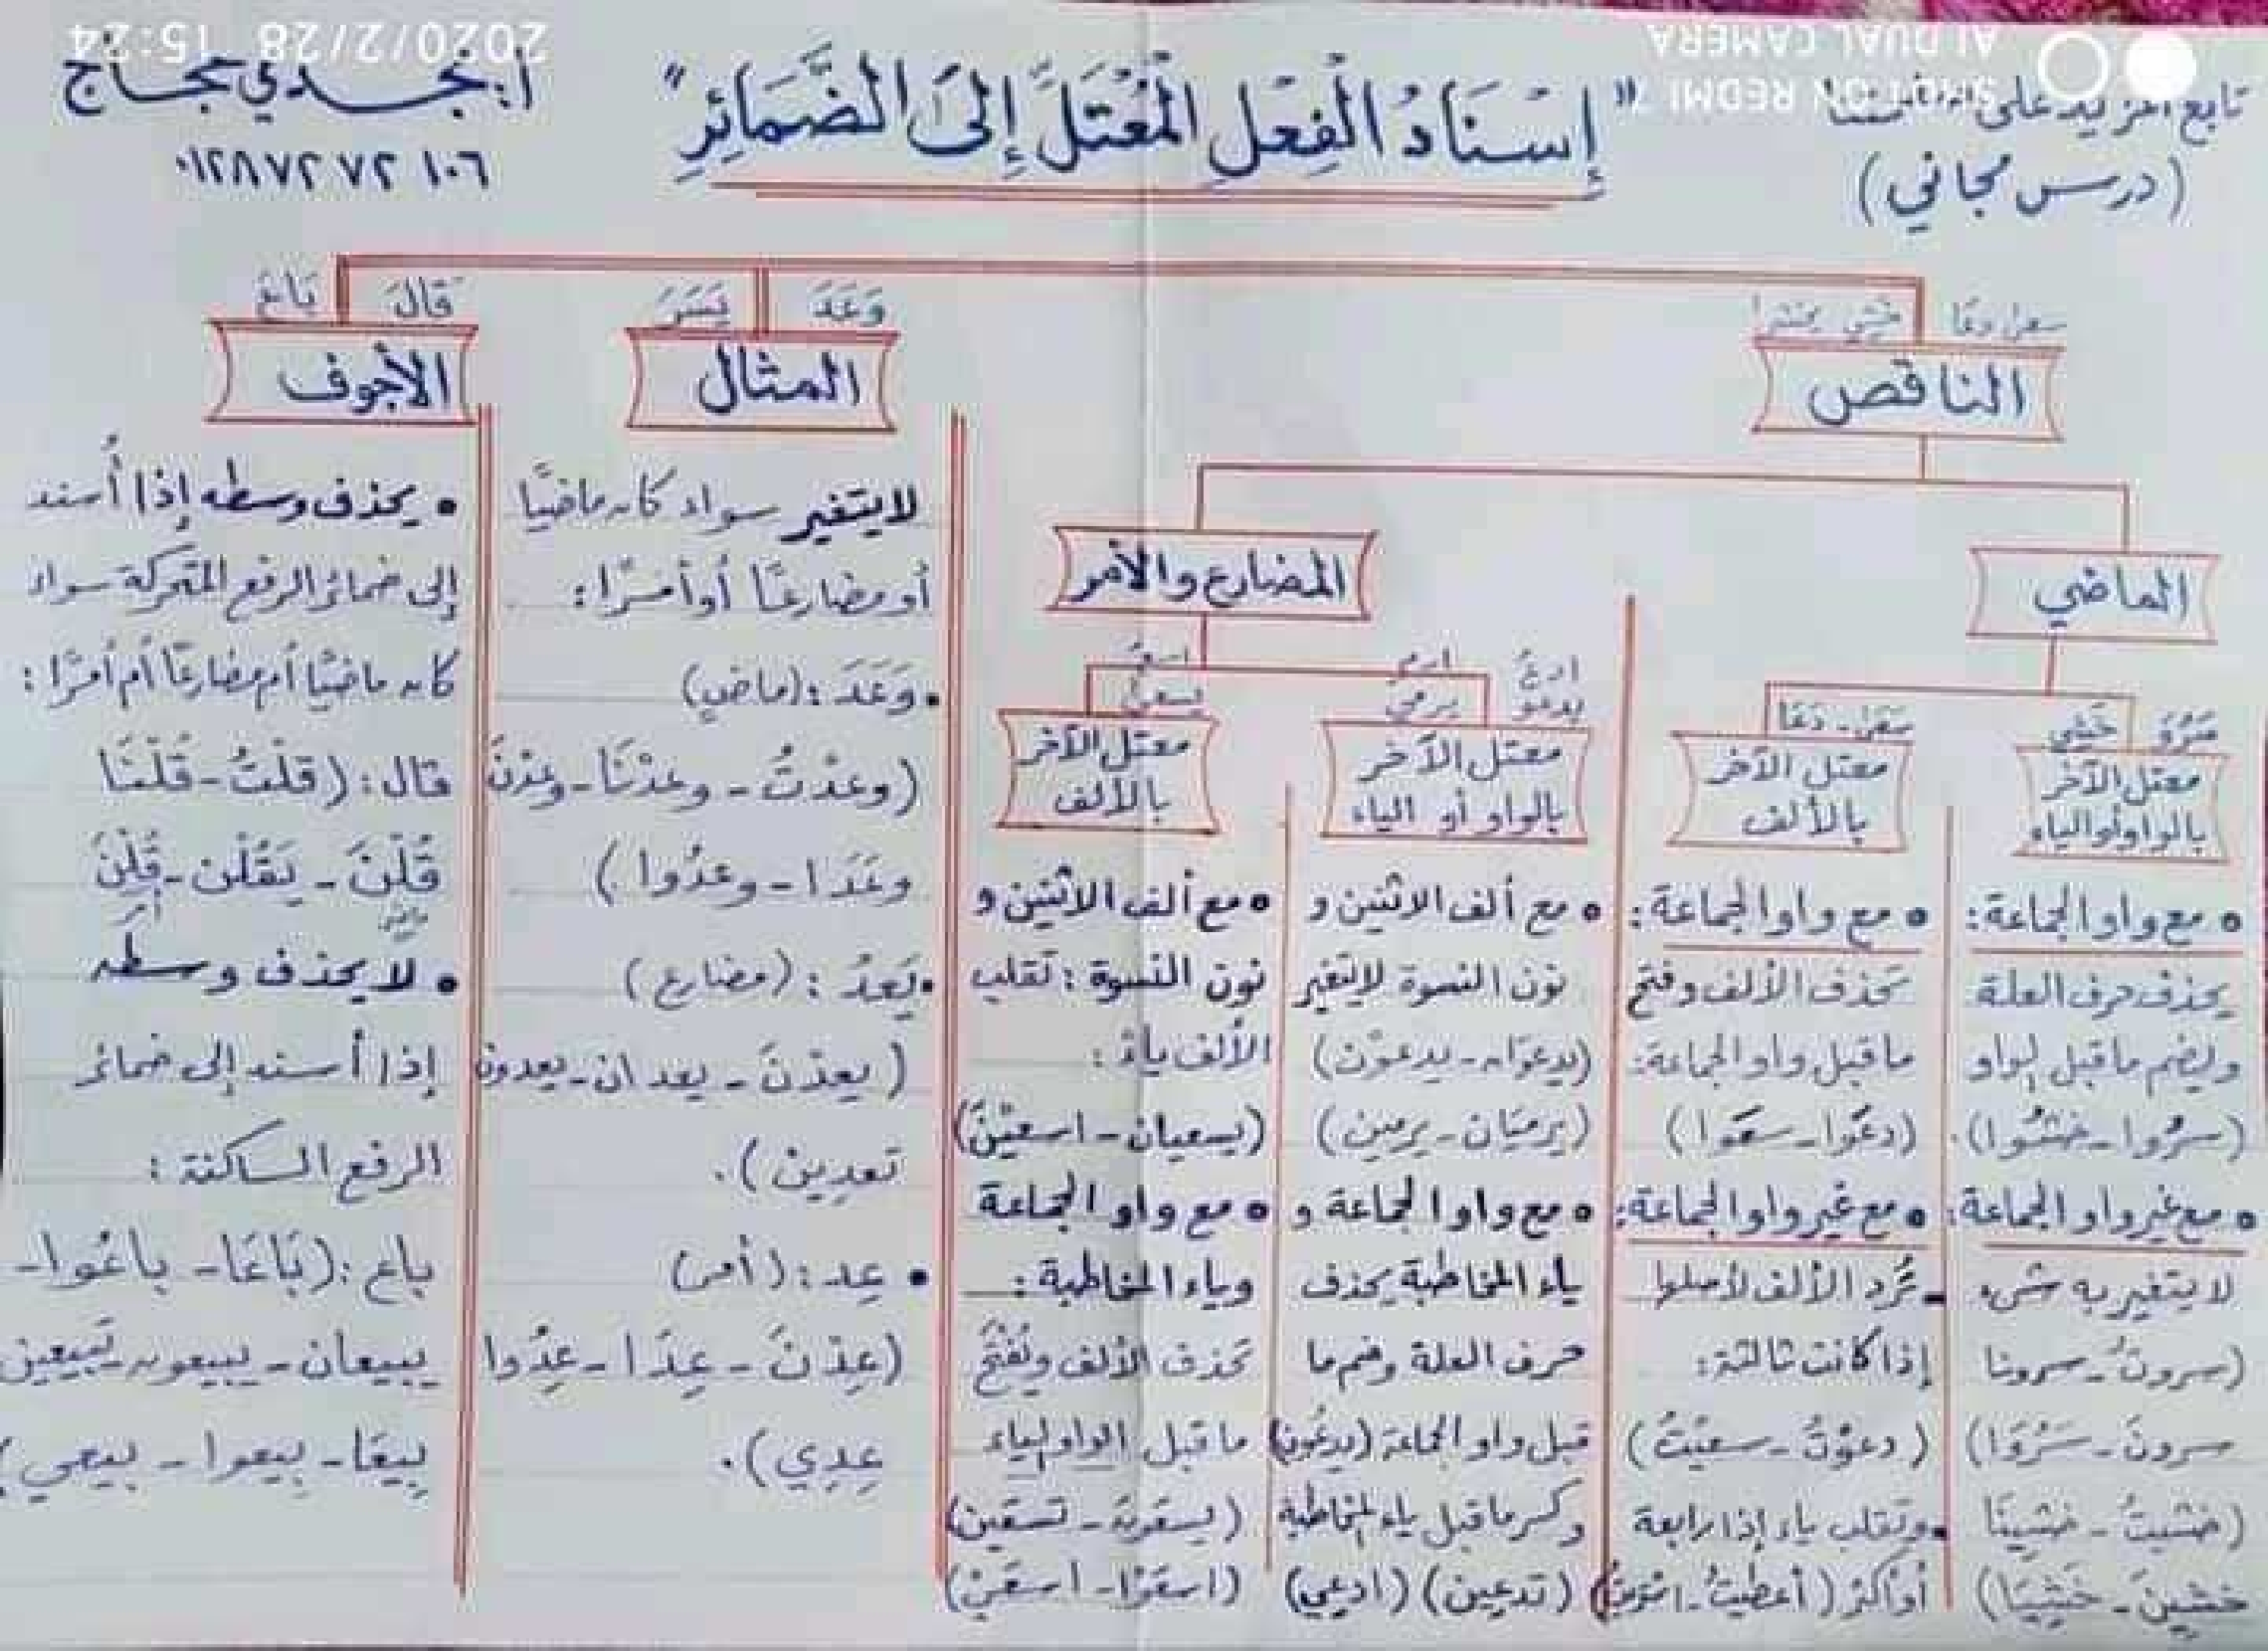 2020/2/28 15:24
SHOT ON REDMI 7
AI DUAL CAMERA
تابع المزيد على
(درس مجاني)
"إسْنَادُ الْفِعْلِ الْمُعْتَلِّ إِلَى الضَّمَائِرِ"
٠١٢٨٧٢ ٧٢ ١٠٦
سعى دعا خشي
الناقص
وَعَدَ يَسَرَ
المثال
قَالَ بَاعَ
الأجوف
الماضي
المضارع والأمر
سَرُوَ خَشِيَ
معتل الآخر
بالواو أو الياء
• مع واو الجماعة:
يحذف حرف العلة
ويضم ما قبل الواو
(سرُوا - خشُوا).
• مع غير واو الجماعة:
لا يتغير به شيء
(سروتُ - سرونا
سرونَ - سَرُوَا)
(خشيتُ - خشينَا
خشينَ - خَشِيَا)
سعى - دعَا
معتل الآخر
بالألف
• مع واو الجماعة:
تحذف الألف وفتح
ما قبل واو الجماعة:
(دعَوا - سعَوا)
• مع غير واو الجماعة:
- تُرد الألف لأصلها
إذا كانت ثالثة:
(دعوْتُ - سعيْتُ)
• وتقلب ياء إذا رابعة
أو أكثر (أعطيتُ -
ادعُ ارمِ
يدعو يرمي
معتل الآخر
بالواو أو الياء
• مع ألف الاثنين و
نون النسوة لا يتغير
(يدعوَان - يدعوْن)
(يرميَان - يرمين)
• مع واو الجماعة و
ياء المخاطبة يحذف
حرف العلة وضم ما
قبل واو الجماعة (يدعُون)
وكسر ما قبل ياء المخاطبة
(تدعين) (ادعي)
اسعَ
يسعى
معتل الآخر
بالألف
• مع ألف الاثنين و
نون النسوة: تقلب
الألف ياءً:
(يسعيان - اسعيْنَ)
• مع واو الجماعة
وياء المخاطبة:
تحذف الألف ويُفتح
ما قبل الواو والياء
(يسعَون - تسعَين)
(اسعَوْا - اسعَيْ)
لا يتغير سواء كان ماضيًا
أو مضارعًا أو أمرًا:
• وَعَدَ: (ماضٍ)
(وعدْتُ - وعدْنَا - وعدْنَ
وعَدَا - وعدُوا)
• يَعِدُ: (مضارع)
(يعدْنَ - يعدان - يعدون
تعدِين).
• عِد: (أمر)
(عِدْنَ - عِدَا - عِدُوا
عِدِي).
• يحذف وسطه إذا أُسند
إلى ضمائر الرفع المتحركة سواء
كان ماضيًا أم مضارعًا أم أمرًا:
قال: (قلْتُ - قُلْنَا
قُلْنَ - يَقُلْن - قُلْنَ
• لا يحذف وسطه
إذا أسند إلى ضمائر
الرفع الساكنة:
باع: (بَاعَا - باعُوا -
يبيعان - يبيعون - تَبيعين
بِيعَا - بِيعوا - بيعي)